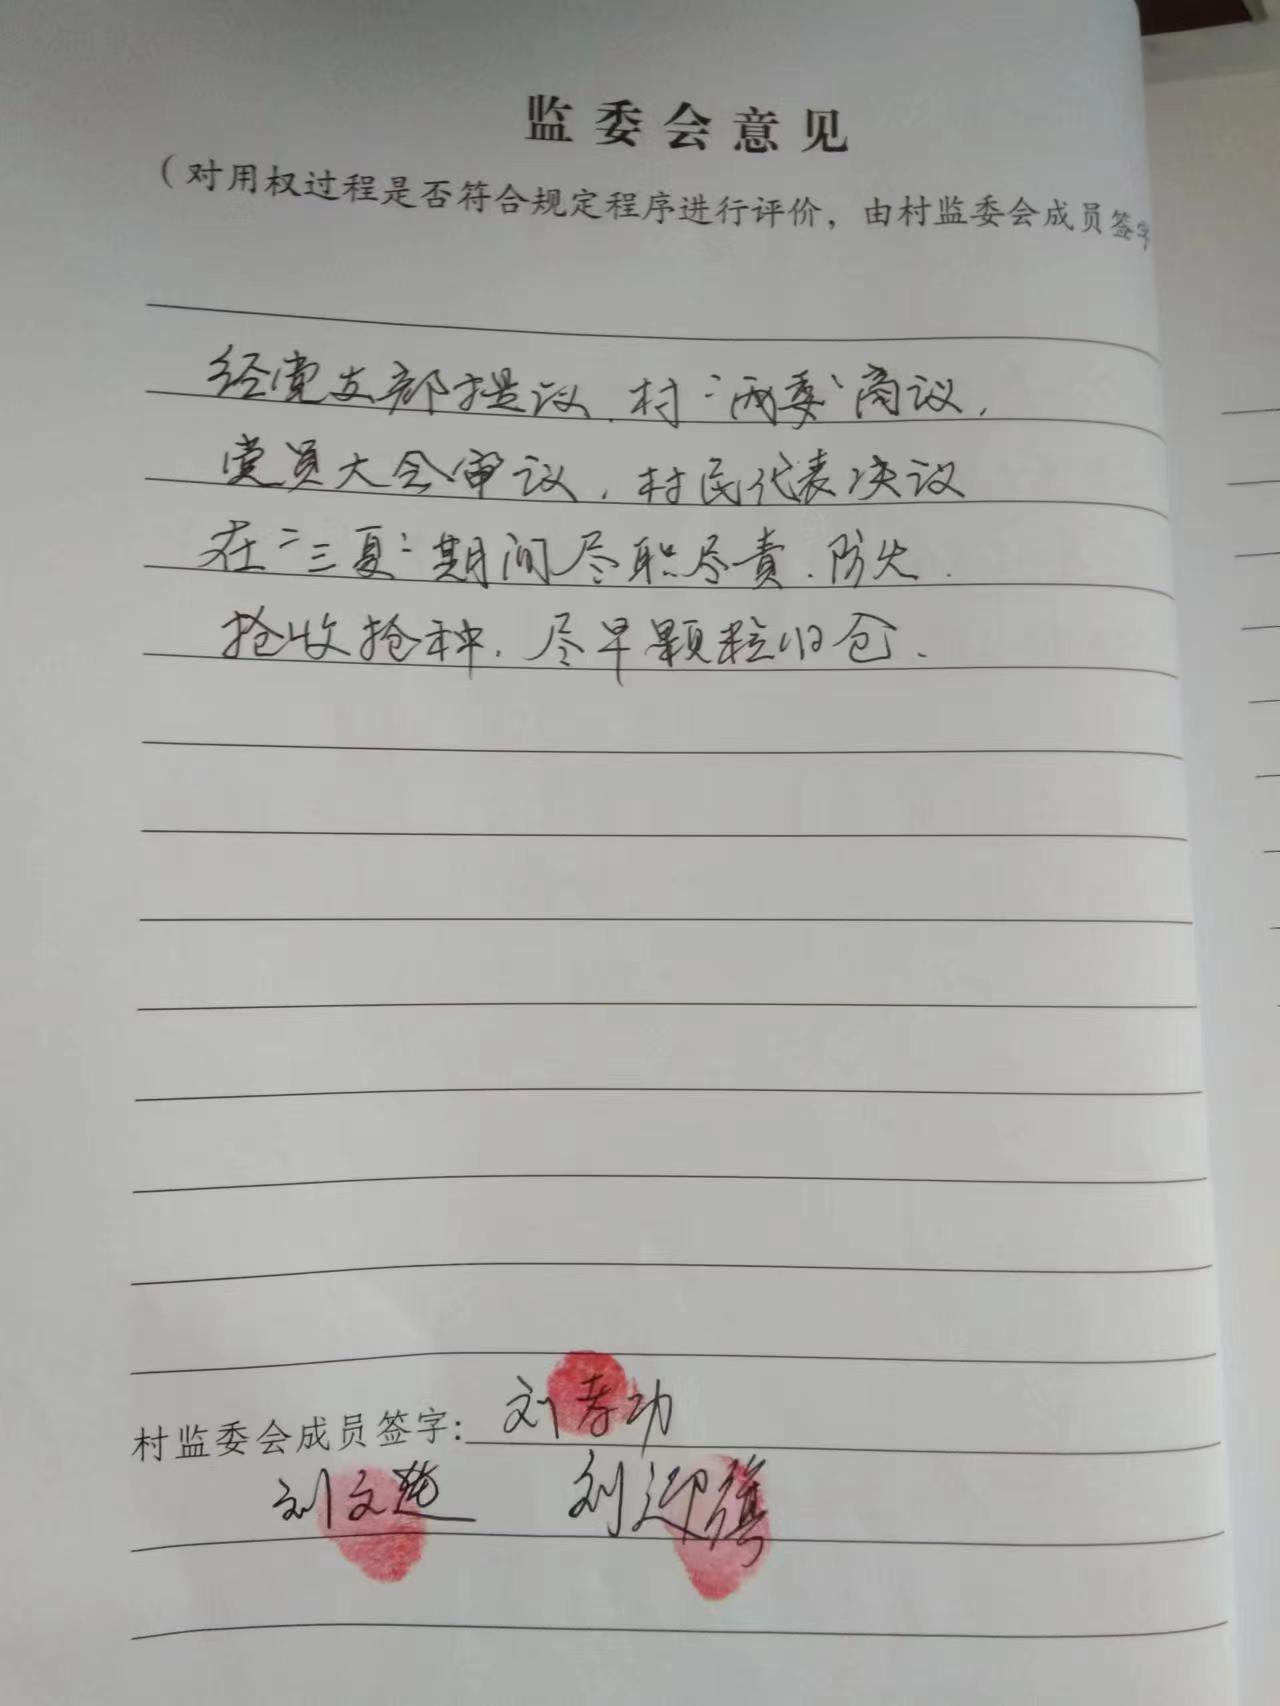 监委会意见
（对用权过程是否符合规定程序进行评价，由村监委会成员签字
经党支部提议，村“两委”商议，
党员大会审议，村民代表决议
在“三夏”期间尽职尽责，防火，
抢收抢种，尽早颗粒归仓．
村监委会成员签字：刘孝功
刘文 刘迎旗